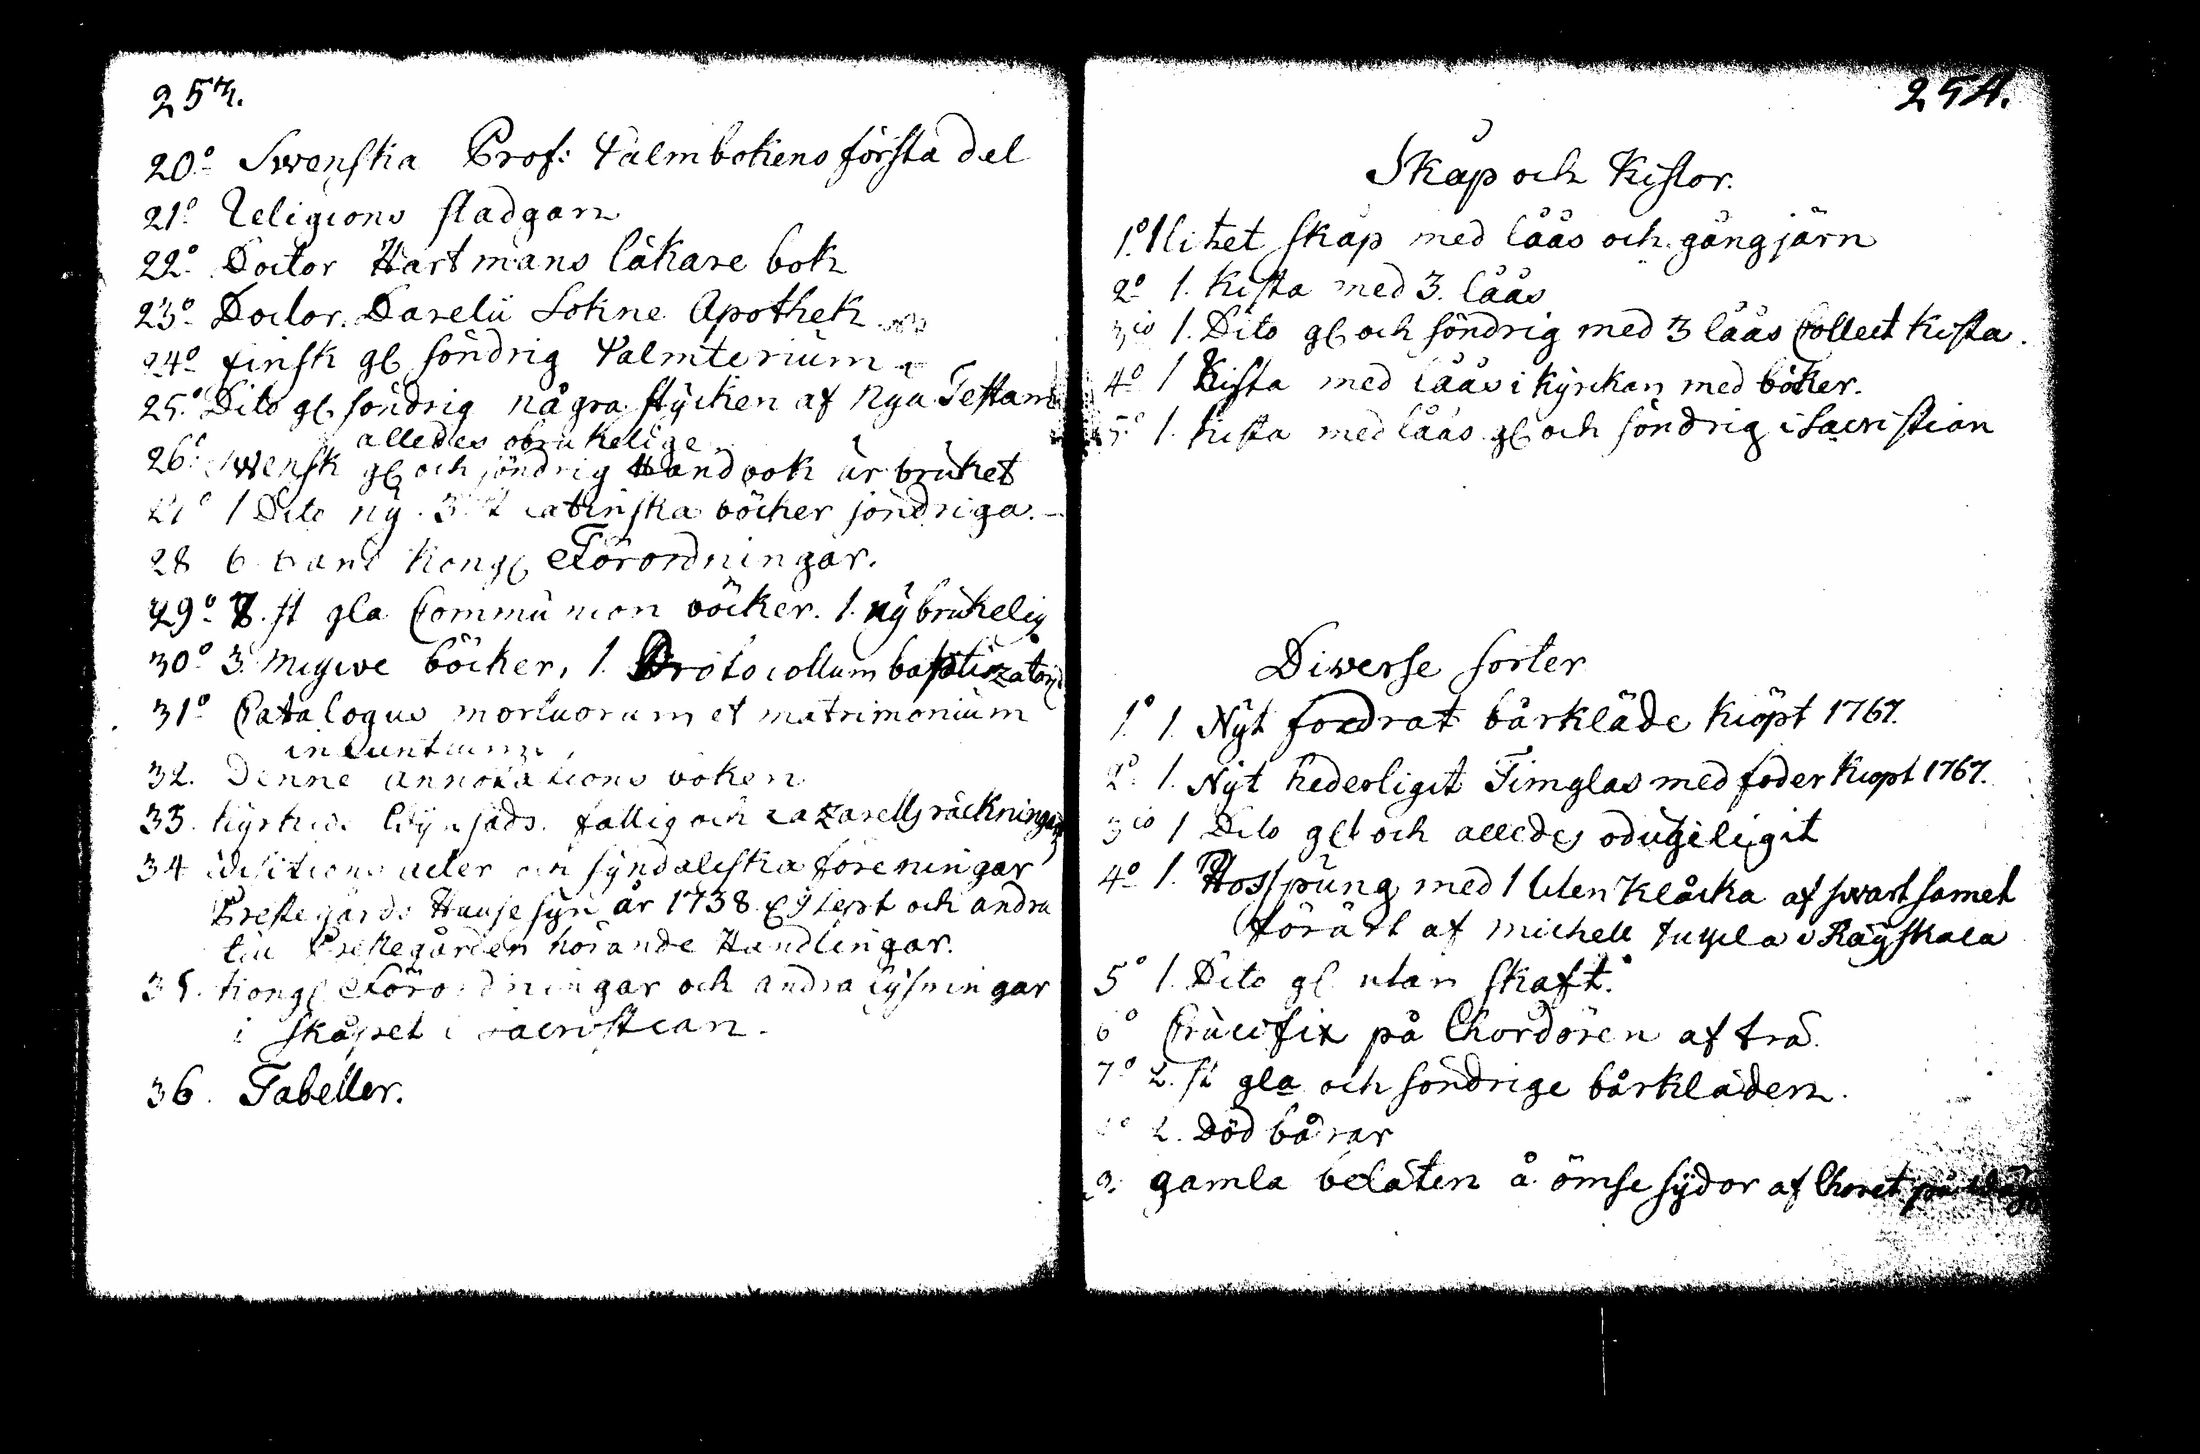 253.
20º Swenska Prof: Psalmbokens första del
21º Religions stadgarn
22º Doctor Hartmans läkare bok
23º Doctor Darelii Sokne Apothek
24º finsk gl söndrig Psalmterium
25º Dito gl. söndrig några stycken af Nya Testam
alledes obrukelige
26º Swensk gl och söndrig Handbok ur bruket
27º 1 Dito ny. 3 st Latinska böcker söndriga.
28 6 band Kongl Förordningar.
29º 8. st gla Communion böcker. 1. ny brukelig
30º 3. Megive böcker, 1. Protocollum baptizatorum
31º Catalogus mortuorum et matrimonium
ineuntium
32. Denne annotations boken
33. Kyrkio Wijnsäds. fattig och Lazaretts räckningar
34 Visitions acter och syndaliska föreningar
Prestegårds Huuse syn år 1738 9 Sept och andra
till Prestegården hörande Handlingar.
35. Kongl Förordningar och andra lysningar
i skåpet i Sacristian.
36. Tabeller.
254.
Skåp och Kistor.
1º 1 litet skåp med låås och gångjärn
2º 1. Kista med 3. låås
3io 1. Dito gl och söndrig med 3 låås Collect Kista.
4º 1 Kista med låås i kyrckan med böker.
5º 1. Kista med låås gl och söndrig i Sacristian
Diverse sorter
1º 1. Nytt fordrat bårkläde kiöpt 1767.
2º 1. Nytt hederligit Timglas med foder kiopt 1767.
3io 1 Dito glt och alledes odugeligit
4º 1. Hosspung med 1 liten klåcka af swart samet
förärt af Michell i Räyskälä
5º 1. Dito gl utan skaft.
6º Crucifix på Chordören af trä.
7º 2. st gla och söndrige bårkläden.
8º 2. Död bårar
9. gamla beläten å ömse sydor af Choret på